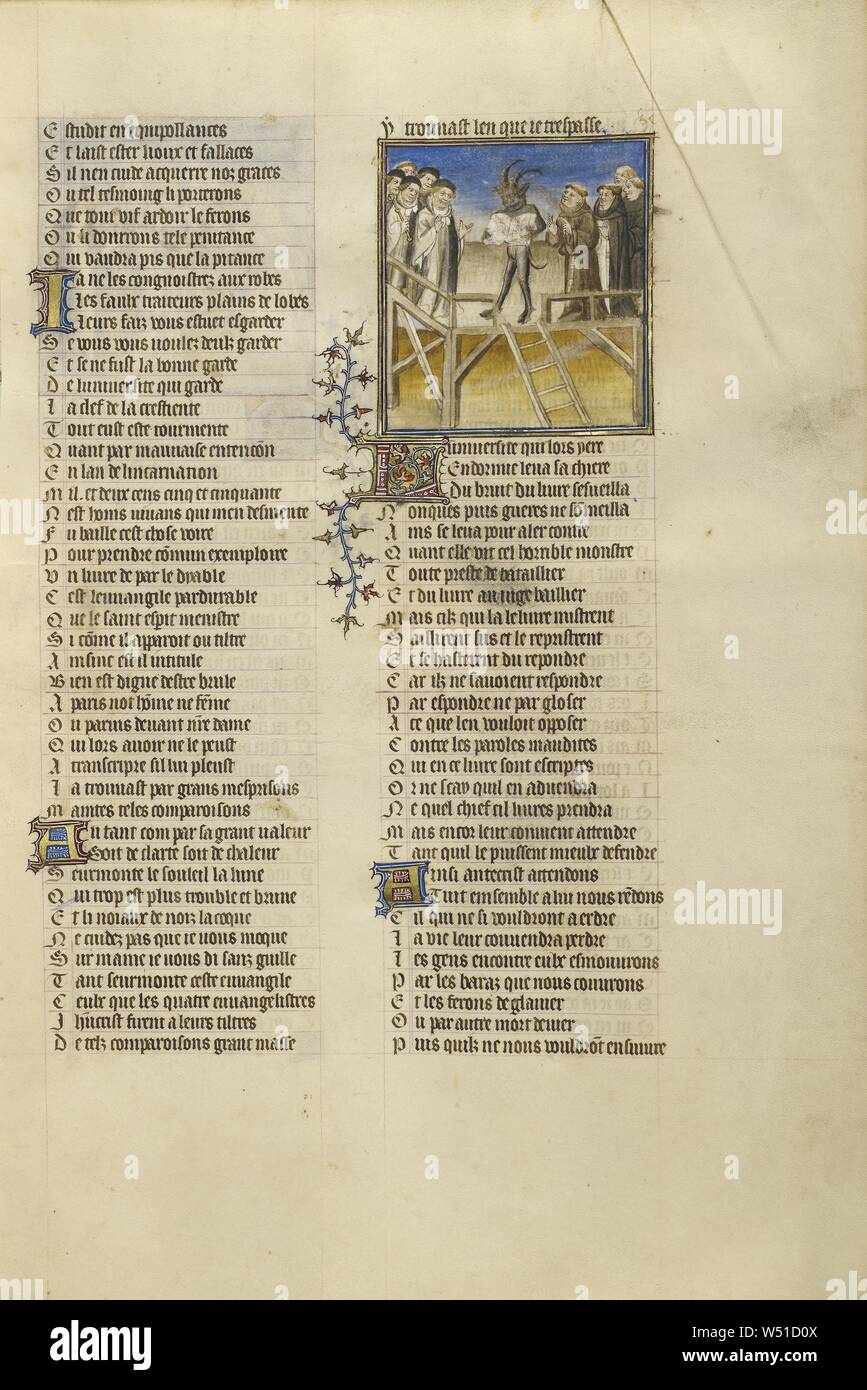 E studit en equipollances
E t laist ester houx et fallaces
S il nen cuide acquerre noz graces
O u tel tesmoing li porterons
Q ue tout vif ardoir le ferons
O u li donrrons tele penitance
Q ui vaudra pis que la pitance
I a ne les congnoistrez aux robes
L es faulx traiteurs plains de lobes
L eurs faiz vous estuet esgarder
S e vous vous voulez deulz garder
E t se ne fust la bonne garde
D e luniversite qui garde
L a clef de la crestiente
T out eust este tourmente
Q uant par mauvaise entencōn
E n lan de lincarnation
M il et deux cens cinq et cinquante
N est homs vivans qui men desmente
F u baille cest chose voire
P our prendre cōmun exemploire
V n livre de par le dyable
C est leuuangile pardurable
Q ue le saint esperit menistre
S i cōme il apparoit ou tiltre
A insinc est il intitule
B ien est digne destre brule
A paris not hōme ne fēme
O u parvis devant nr̄e dame
Q ui lors avoir ne le peust
A transcripre sil lui pleust
L a trouvast par grans mesprisons
M aintes teles comparoisons
A u tant com par sa grant valeur
S oit de clarte soit de chaleur
S eurmonte le souleil la lune
Q ui trop est plus trouble et brune
E t li noiaux de noiz la coque
N e cuidez pas que ie vous moque
S ur mame ie vous di sanz guille
T ant seurmonte ceste euuangile
C eulx que les quatre euuangelistres
J hūcrist firent a leurs tiltres
D e telz comparoisons grant masse
Y trouvast len que ie trespasse
L univversite qui lors yere
E ndormie leva sa chiere
D u bruit du livre sesueilla
N onques puis gueres ne sōmeilla
A ins se leva pour aler contre
Q uant elle vit cel horrible monstre
T oute preste de bataillier
E t du livre au iuge baillier
M ais cilz qui la le livre mistrent
S aillirent sus et le repristrent
E t se hasterent du repondre
C ar ilz ne sauoient respondre
P ar espondre ne par gloser
A ce que len vouloit opposer
C ontre les paroles maudites
Q ui en ce livre sont escriptes
O r ne scay quil en advendra
N e quel chief cil livres prendra
M ais encor leur convient attendre
T ant quil le puissent mieulx deffendre
A insi antecrist attendons
T uit ensemble a lui nous rēdons
C il qui ne si vouldront aerdre
L a vie leur convendra perdre
L es gens encontre eulx esmouvrons
P ar les baraz que nous couvrons
E t les ferons de glaiver
O u par autre mort devier
P uis quilz ne nous vouldrōt ensuivre
alamy
Image ID: W51D0X
www.alamy.com